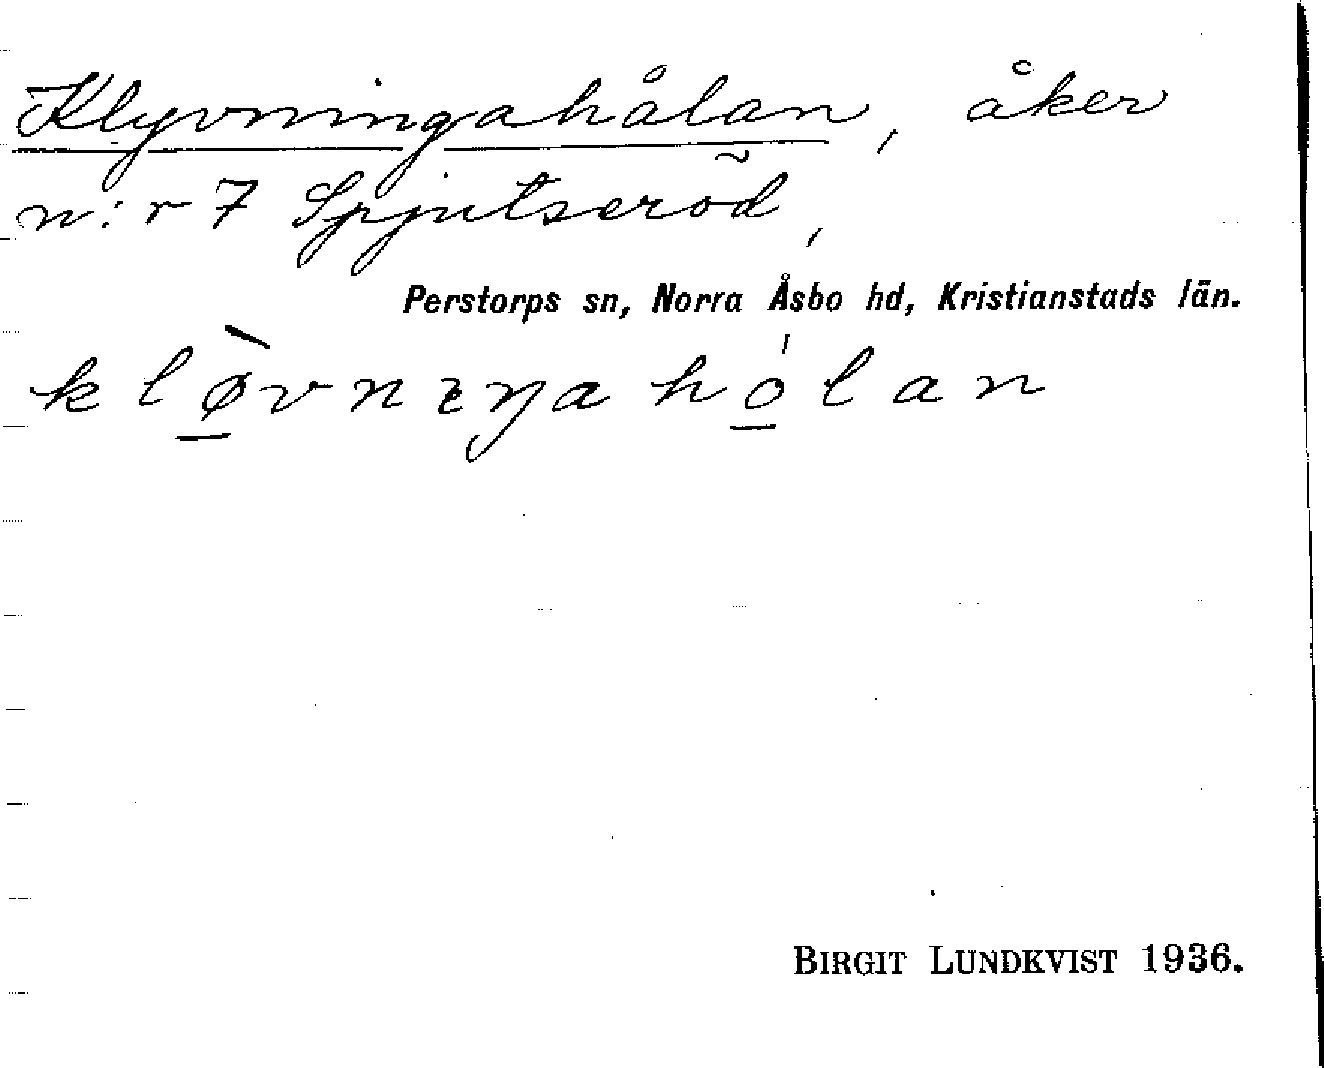 Klyvningahålan, åker
n:r 7 Spjutseröd,
Perstorps sn, Norra Åsbo hd, Kristianstads län.
klø̱̀vnıŋa hó̱lan
BIRGIT LUNDKVIST 1936.